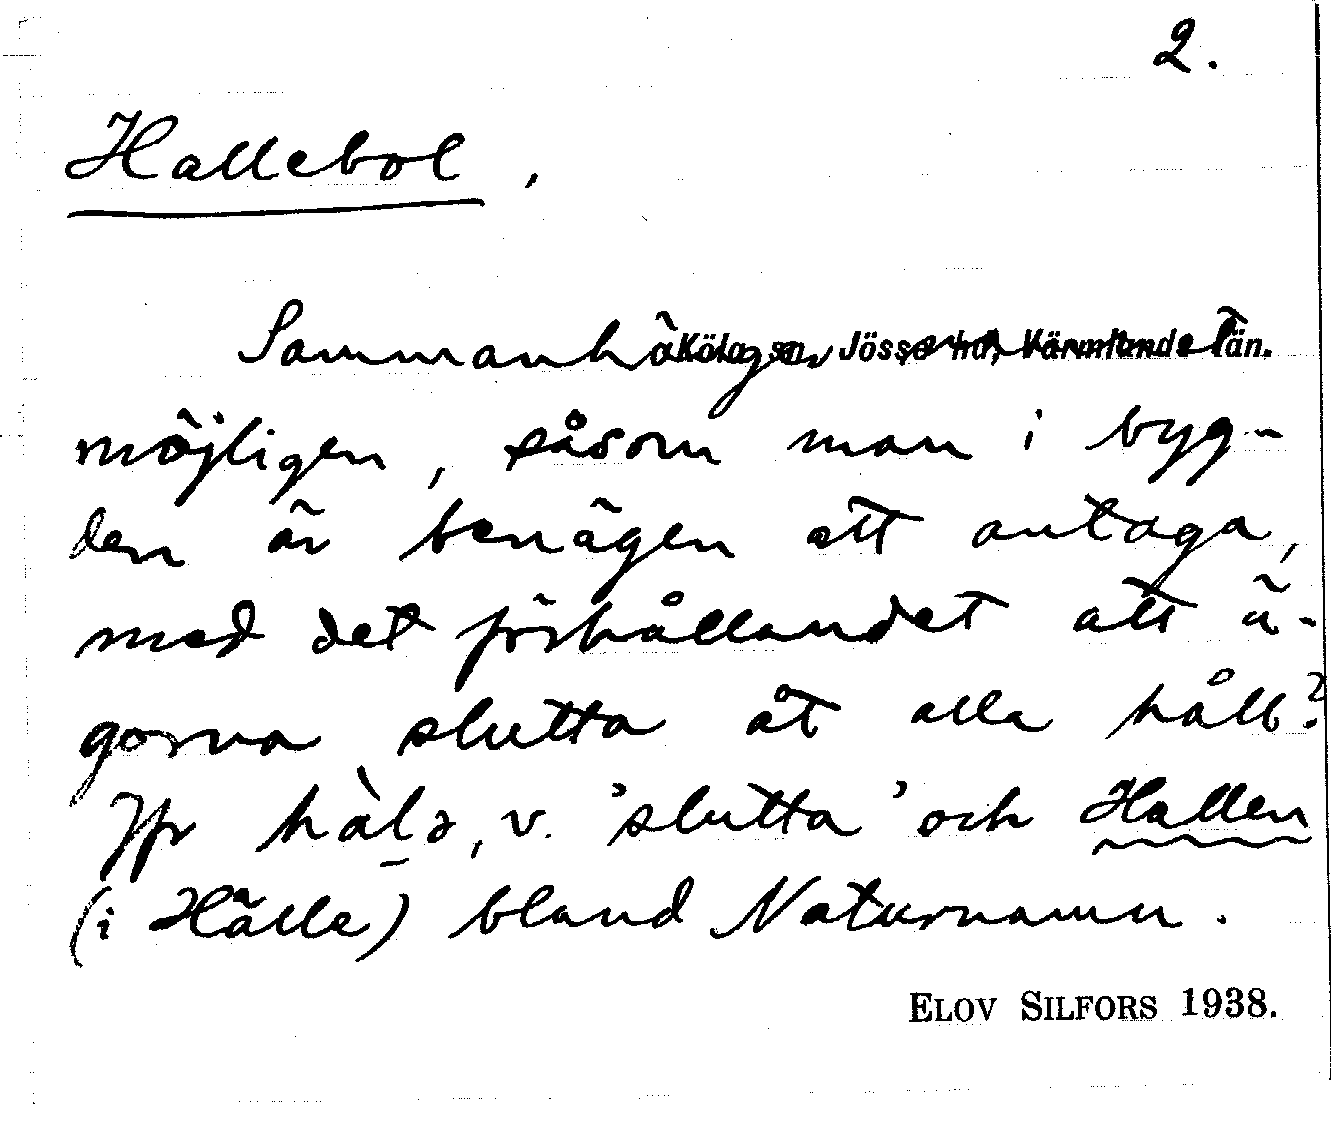 2.
Hallebol,
Sammanhänger namnet
Köla sn, Jösse hd, Värmlands län.
möjligen, såsom man i byg-
den är benägen att antaga,
med det förhållandet att ä-
gorna slutta åt alla håll?
Jfr hàlа, v. 'slutta' och Hallen
(i Hälle) bland Naturnamn.
ELOV SILFORS 1938.